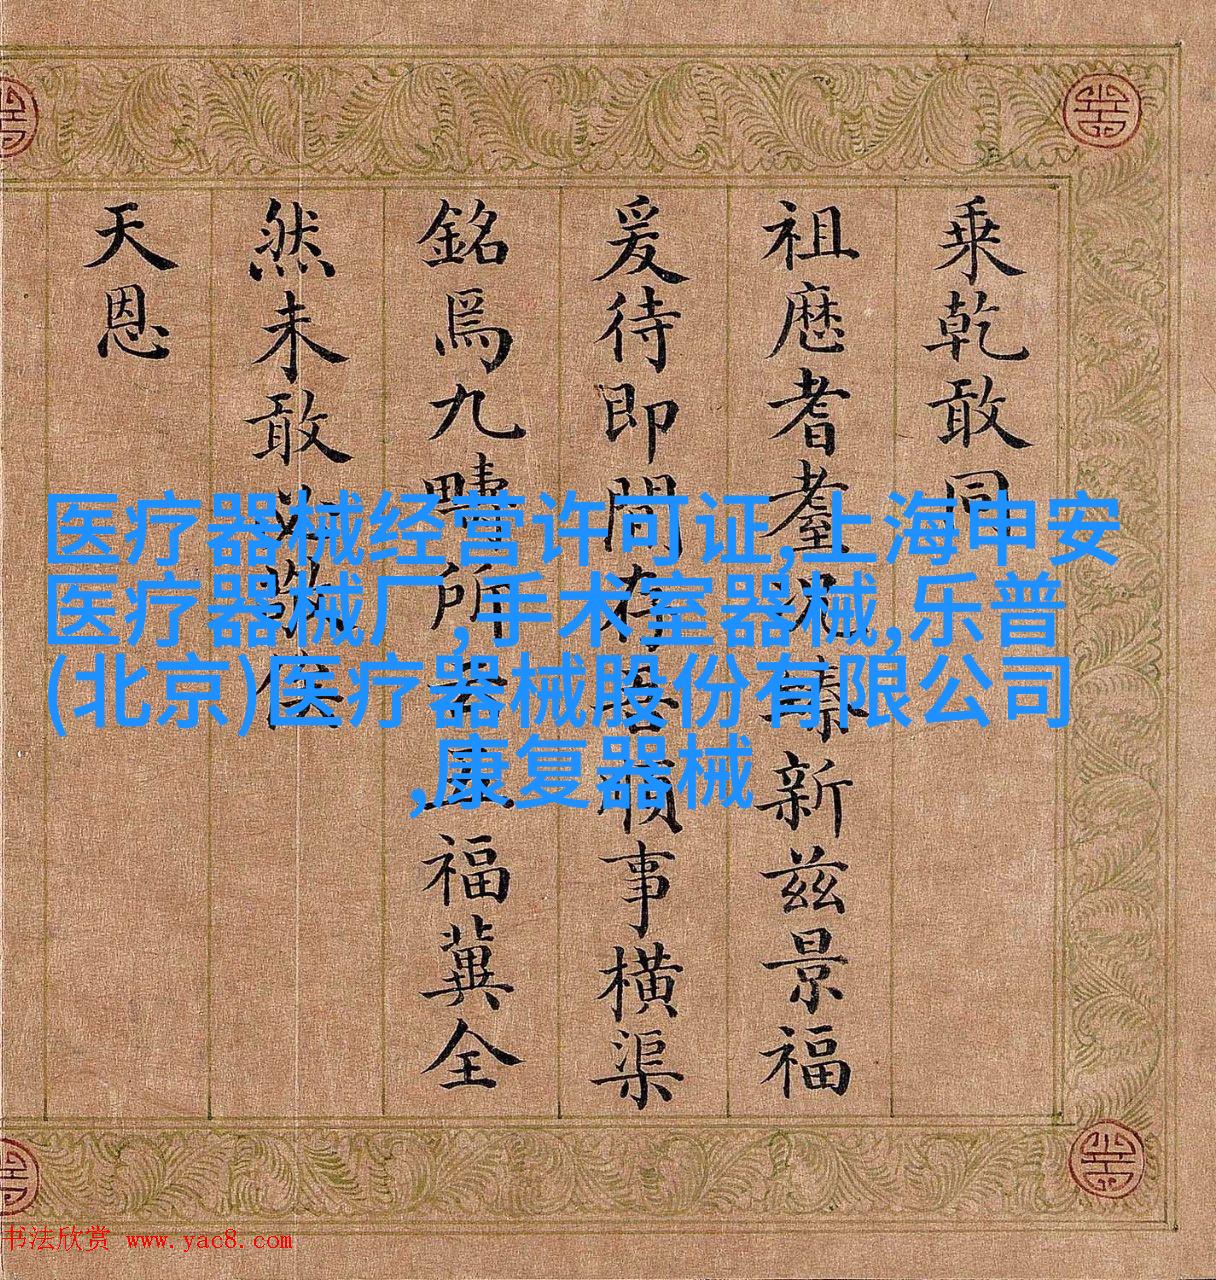 乗乾敢同
祖歴耆耋臻新兹景福
爰待即間存事橫渠
銘爲九疇所五福冀全
然未敢以
天恩
医疗器械经营许可证,上海申安
医疗器械厂,手术室器械,乐普
(北京)医疗器械股份有限公司
,康复器械
书法欣赏 www.yac8.com